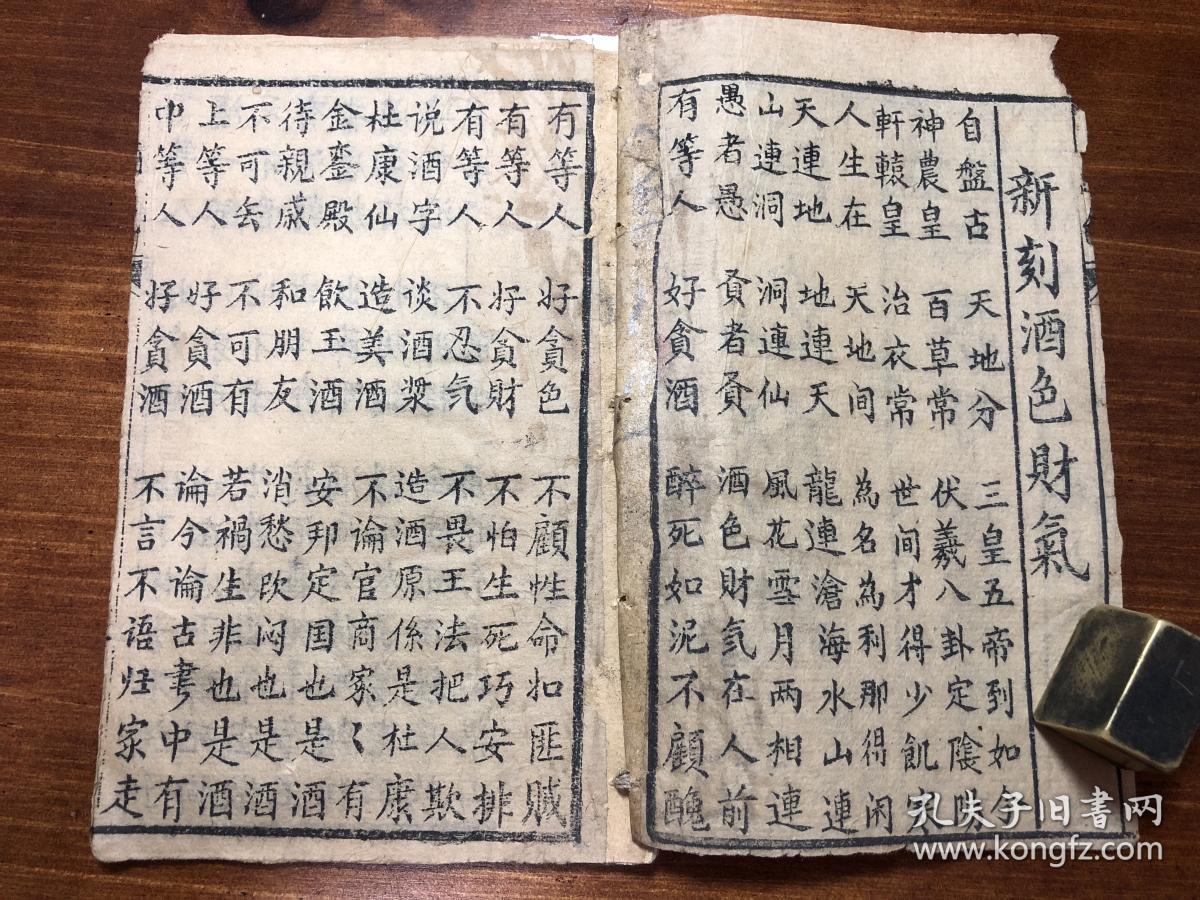 新刻酒色財氣
自盤古 天地分 三皇五帝到如
神農皇 百草常 伏羲八卦定陰
軒轅皇 治衣常 世间才得少飢
人生在 天地间 為名為利那得闲
天連地 地連天 龍連滄海水山連
山連洞 洞連仙 風花雪月两相連
愚者愚 者 酒色財氣在人前
有等人 好貪酒 醉死如泥不顧醜
有等人 好貪色 不顧性命扣匪贼
有等人 好貪財 不怕生死巧安排
有等人 不忍气 不畏王法把人欺
说酒字 谈酒浆 造酒原係是杜康
杜康仙 造美酒 不論官商家〻有
金銮殿 飲玉酒 安邦定国也是酒
待親戚 和朋友 消愁闷也是酒
不可丢 不可有 若禍生非也是酒
上等人 好貪酒 論今論古書中有
中等人 好貪酒 不言不语归家走
孔夫子旧书网
www.kongfz.com